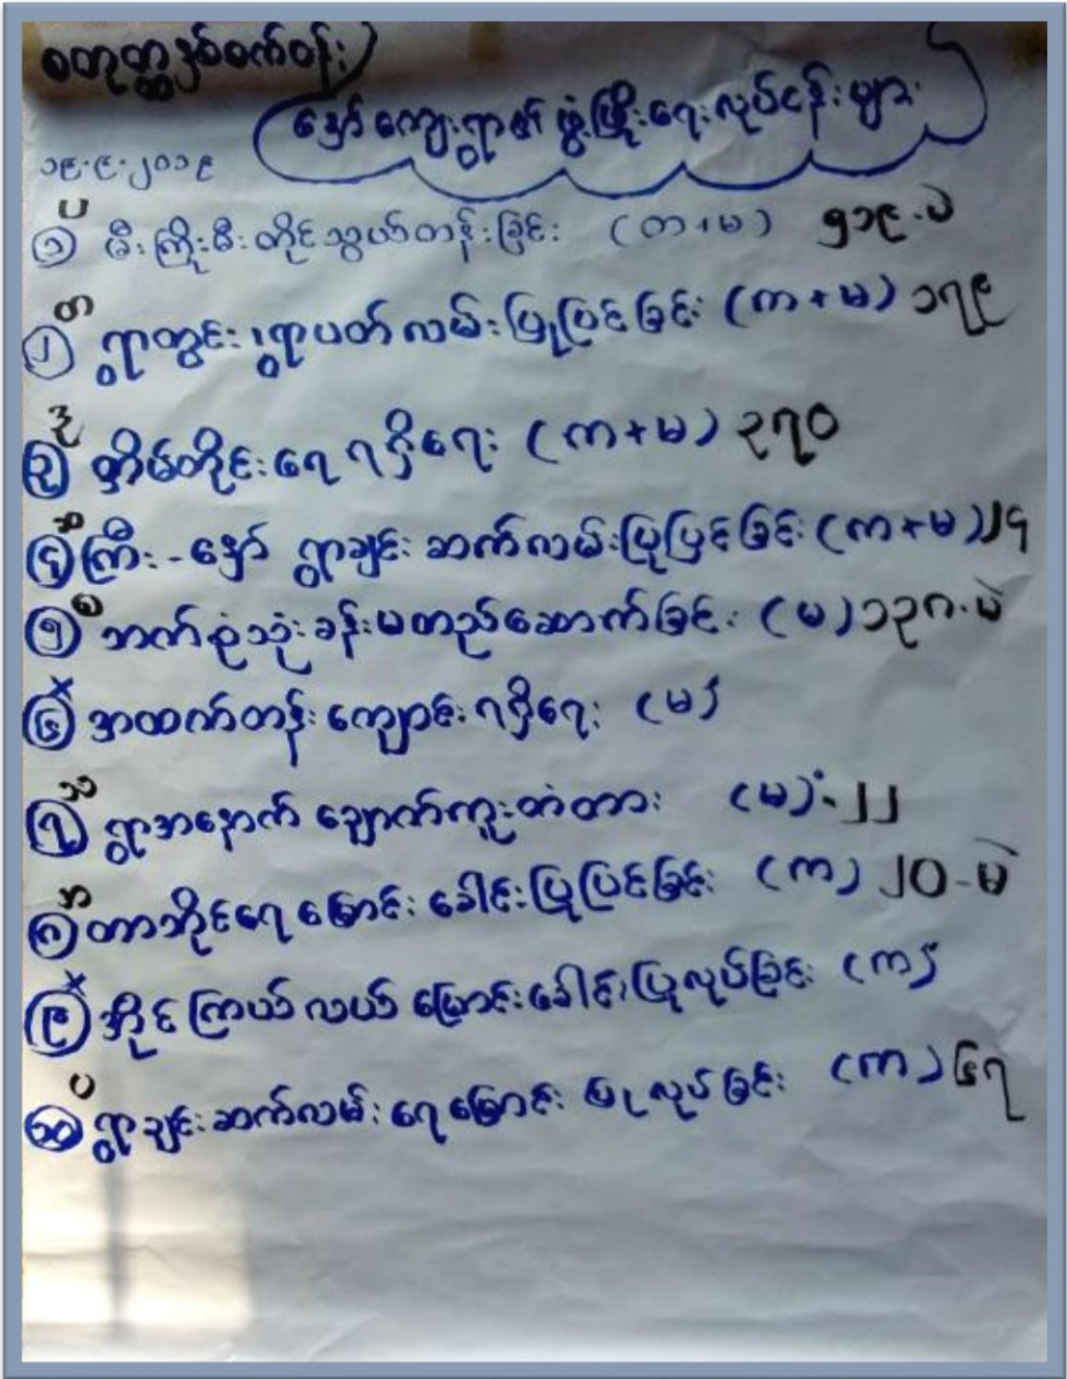 စတုတ္ထနှစ်စက်ဝန်း
နှော် ကျေးရွာ၏ ဖွံ့ဖြိုးရေးလုပ်ငန်းများ
၁၉.၉.၂၀၁၉
ပ
၁ မီးကြိုးမီးတိုင်သွယ်တန်းခြင်း (က+မ) ၅၁၉.မဲ
တ
၂ ရွာတွင်းရွာပတ်လမ်းပြုပြင်ခြင်း (က+မ) ၁၇၉
ဒု
၃ အိမ်တိုင်းရေရရှိရေး (က+မ) ၃၇၀
၄ ကြီး-နှော် ရွာချင်းဆက်လမ်းပြုပြင်ခြင်း (က+မ) ၂၄
စ
၅ ဘက်စုံသုံးခန်းမတည်ဆောက်ခြင်း (မ) ၁၃၈.မဲ
x
၆ အထက်တန်းကျောင်းရရှိရေး (မ)
သ
၇ ရွာအနောက် ချောက်ကူးတံတား (မ) ၂၂
အ
၈ တာဘိုင်ရေမြောင်းခေါင်းပြုပြင်ခြင်း (က) ၂၀-မဲ
x
၉ အိုင်ကြယ်လယ်မြောင်းခေါင်းပြုလုပ်ခြင်း (က)
ပ
၁၀ ရွာချင်းဆက်လမ်းရေမြောင်းပြုလုပ်ခြင်း (က) ၆၇